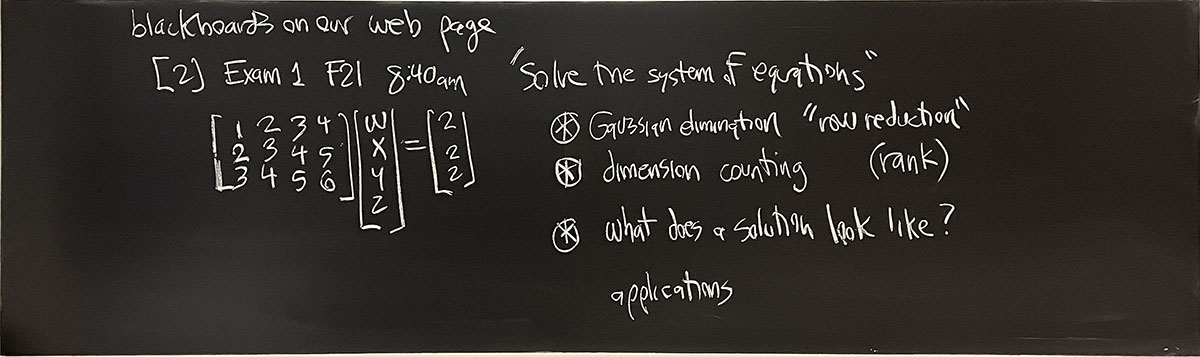 blackboards on our web page
[2] Exam 1 F21 8:40am
[1 2 3 4] [w] = [2]
[2 3 4 5] [x] [2]
[3 4 5 6] [y] [2]
[z]
"Solve the system of equations"
⊛ Gaussian elimination "row reduction"
⊛ dimension counting (rank)
⊛ what does a solution look like?
applications